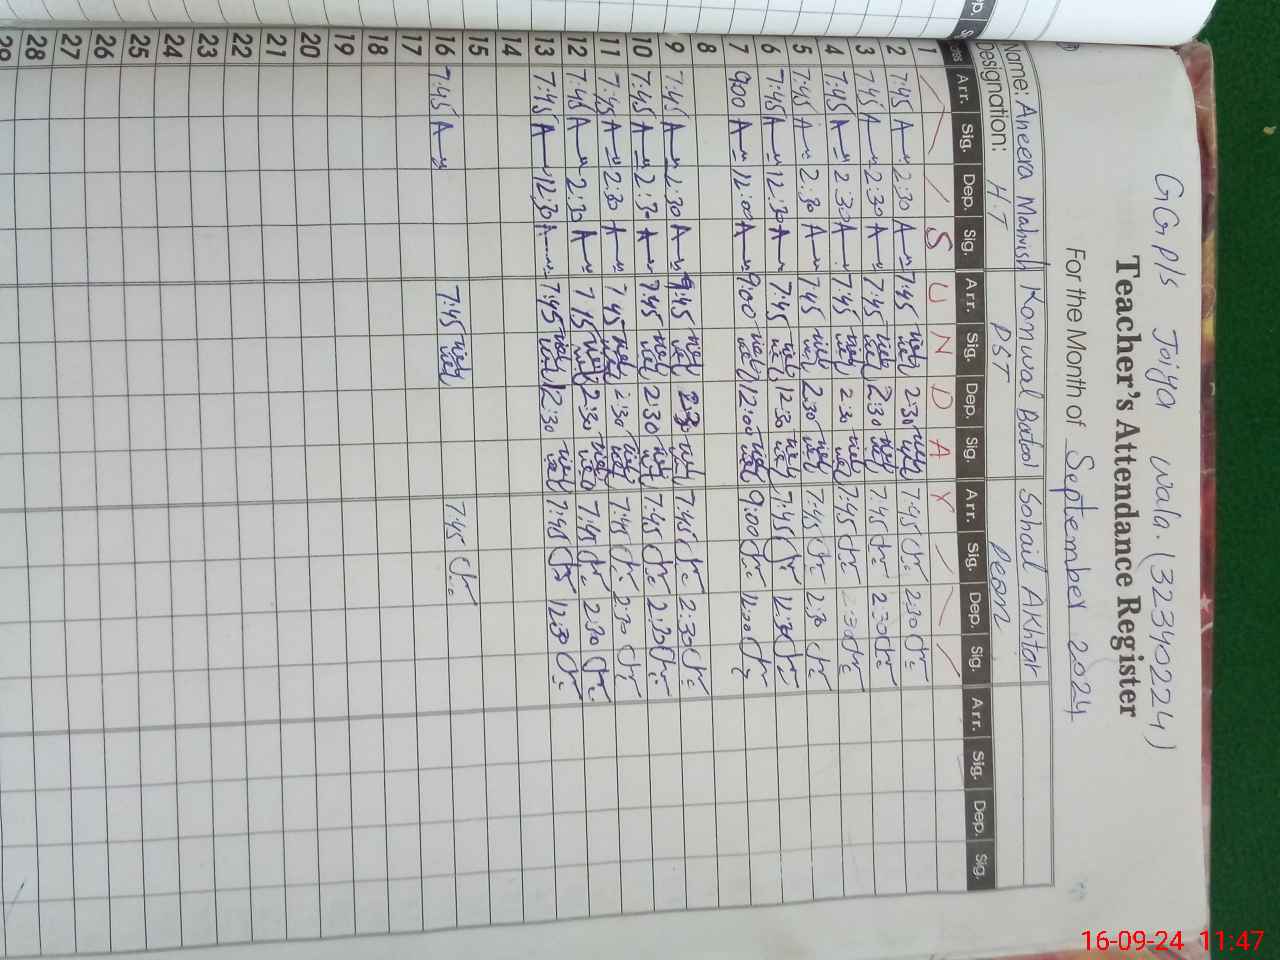 GGPS Joiya Wala. (32340224)
Teacher's Attendance Register
For the Month of September 2024
Name: Aneera Mahvish Konwal Batool Sohail Akhtar
Designation: H.T PST Peon
Arr. Sig. Dep. Sig. Arr. Sig. Dep. Sig. Arr. Sig. Dep. Sig. Arr. Sig. Dep. Sig.
1 S U N D A Y
2 7:45 2:30 7:45 2:30 7:45 2:30
3 7:45 2:30 7:45 2:30 7:45 2:30
4 7:45 2:30 7:45 2:30 7:45 2:30
5 7:45 2:30 7:45 2:30 7:45 2:30
6 7:45 12:30 7:45 12:30 7:45 12:30
7 9:00 12:00 9:00 12:00 9:00 12:00
8
9 7:45 2:30 7:45 2:30 7:45 2:30
10 7:45 2:30 7:45 2:30 7:45 2:30
11 7:45 2:30 7:45 2:30 7:45 2:30
12 7:45 2:30 7:45 2:30 7:45 2:30
13 7:45 12:30 7:45 12:30 7:45 12:30
14
15
16 7:45 7:45 7:45
17
18
19
20
21
22
23
24
25
26
27
28
29
16-09-24 11:47